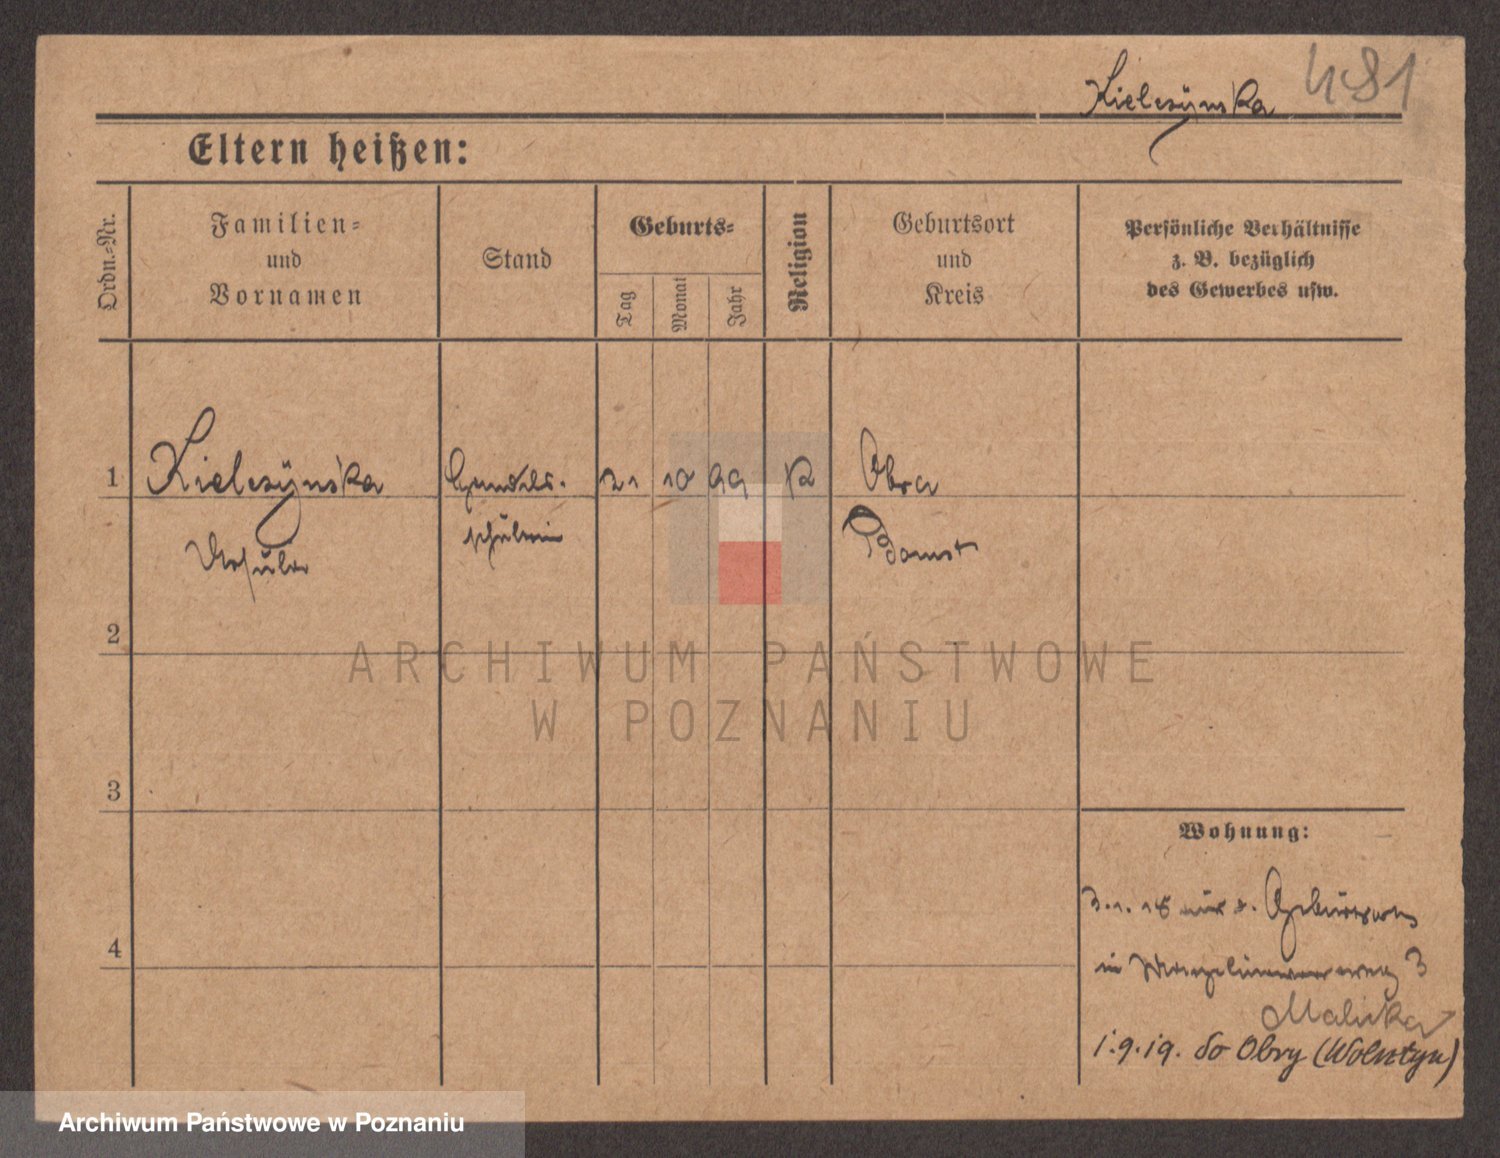 Kielczyńska 481
Eltern heißen:
Ordn.=Nr.
Familien=
und
Vornamen
Stand
Geburts=
Tag
Monat
Jahr
Religion
Geburtsort
und
Kreis
Persönliche Verhältnisse
z. B. bezüglich
des Gewerbes usw.
1 Kielczyńska Handels- 21 10 99 K Obra
Ursula schülerin Bomst
2
ARCHIWUM PAŃSTWOWE
W POZNANIU
3
Wohnung:
3.1.18 aus d. Geburtsort
4
in 3
Malicka
1.9.19. do Obry (Wolsztyn)
Archiwum Państwowe w Poznaniu